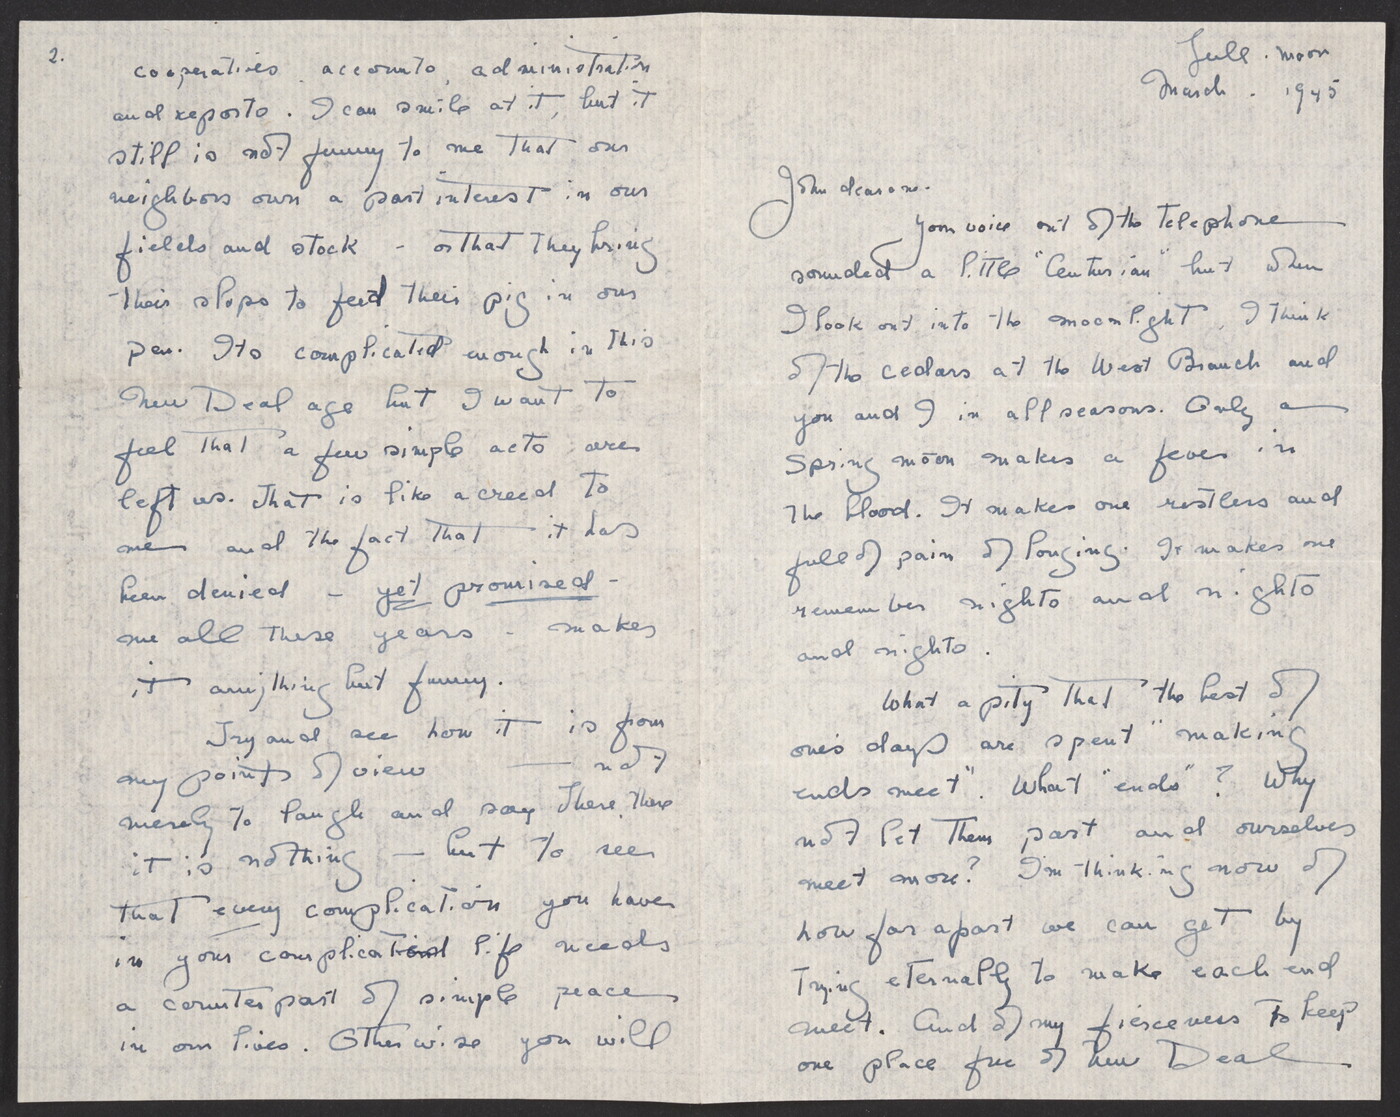 Full. moon
March. 1945
John dear one.
Your voice out of the telephone
sounded a little "Centurian" but when
I look out into the moonlight, I think
of the cedars at the West Branch and
you and I in all seasons. Only a
Spring moon makes a fever in
the blood. It makes one restless and
full of pain of longing. It makes one
remember nights and nights
and nights.
What a pity that the best of
one's days are spent "making
ends meet". What "ends"? Why
not let them part and ourselves
meet more? I'm thinking now of
how far apart we can get by
trying eternally to make each end
meet. And of my fierceness to keep
one place free of New Deal
2.
cooperatives, accounts, administration
and reports. I can smile at it, but it
still is not funny to me that our
neighbors own a part interest in our
fields and stock - or that they bring
their slops to feed their pig in our
pen. Its complicated enough in this
New Deal age but I want to
feel that a few simple acts are
left us. That is like a creed to
me and the fact that it has
been denied - yet promised -
me all these years - makes
it anything but funny.
Try and see how it is from
my points of view — not
merely to laugh and say There, there
it is nothing — but to see
that every complication you have
in your complicated life needs
a counterpart of simple peace
in our lives. Otherwise you will